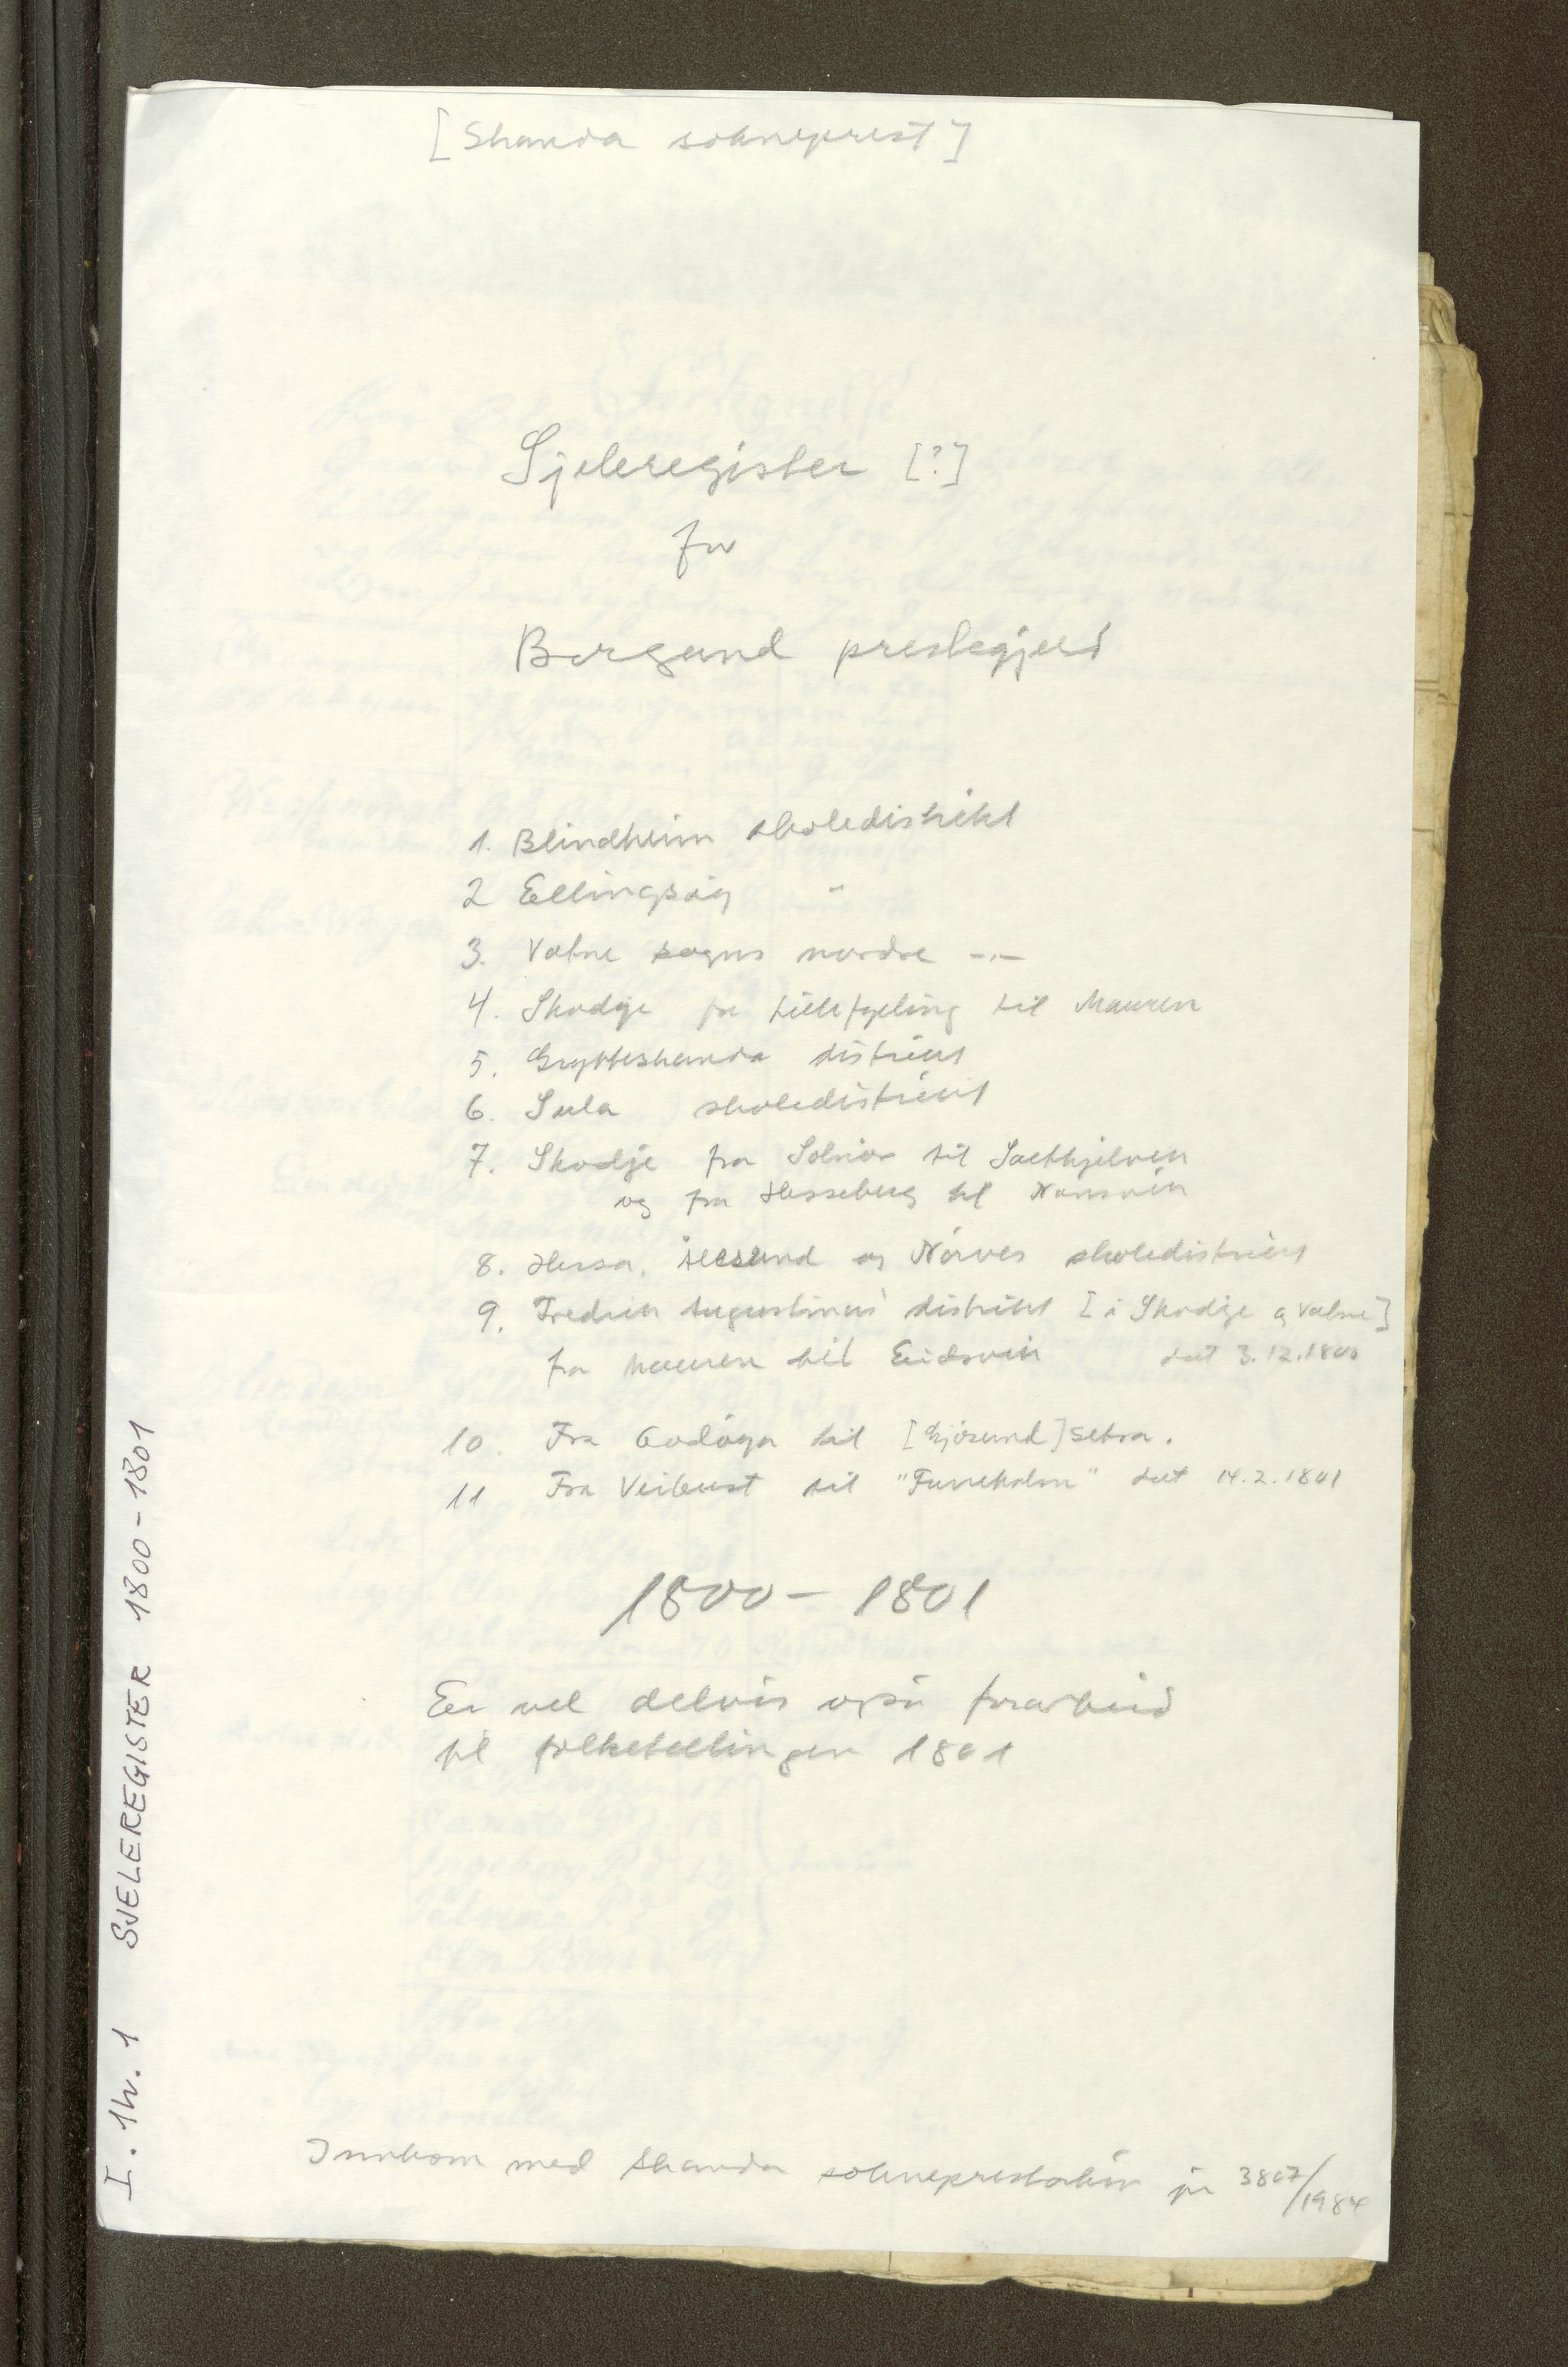 [Stranda sokneprest]
Sjeleregister [?]
for
Borgund prestegjeld
1. Blindheim skoledistrikt
2 Ellingsøy "
3. Vatne sogns nordre -"-
4. Skodje fra Littefjeling til Mauren
5. Gryttestranda distrikt
6. Sula skoledistrikt
7. Skodje fra Solnør til
og fra Hesseberg til
8. Hessa, Ålesund og Nørves skoledistrikt
9. Fredrik Augustinus' distrikt [i Skodje og Vatne]
fra Mauren til Eidsvik dat 3.12.1800
10. Fra Godøya til [Gjøsund]setra.
11 Fra Veibust til "Furreholm" dat 14.2.1801
1800 - 1801
Er vel delvis også forarbeid
til folketellingen 1801
Innkom med Stranda sokneprestarkiv jr 3867/1984
I. 1h. 1 SJELEREGISTER 1800-1801